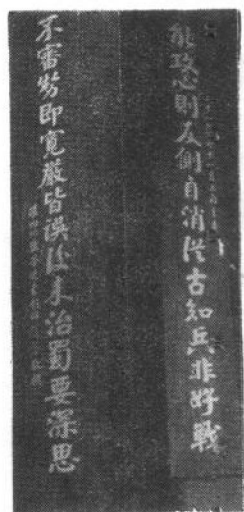 能攻心則反側自消從古知兵非好戰
不審勢即寬嚴皆誤後來治蜀要深思